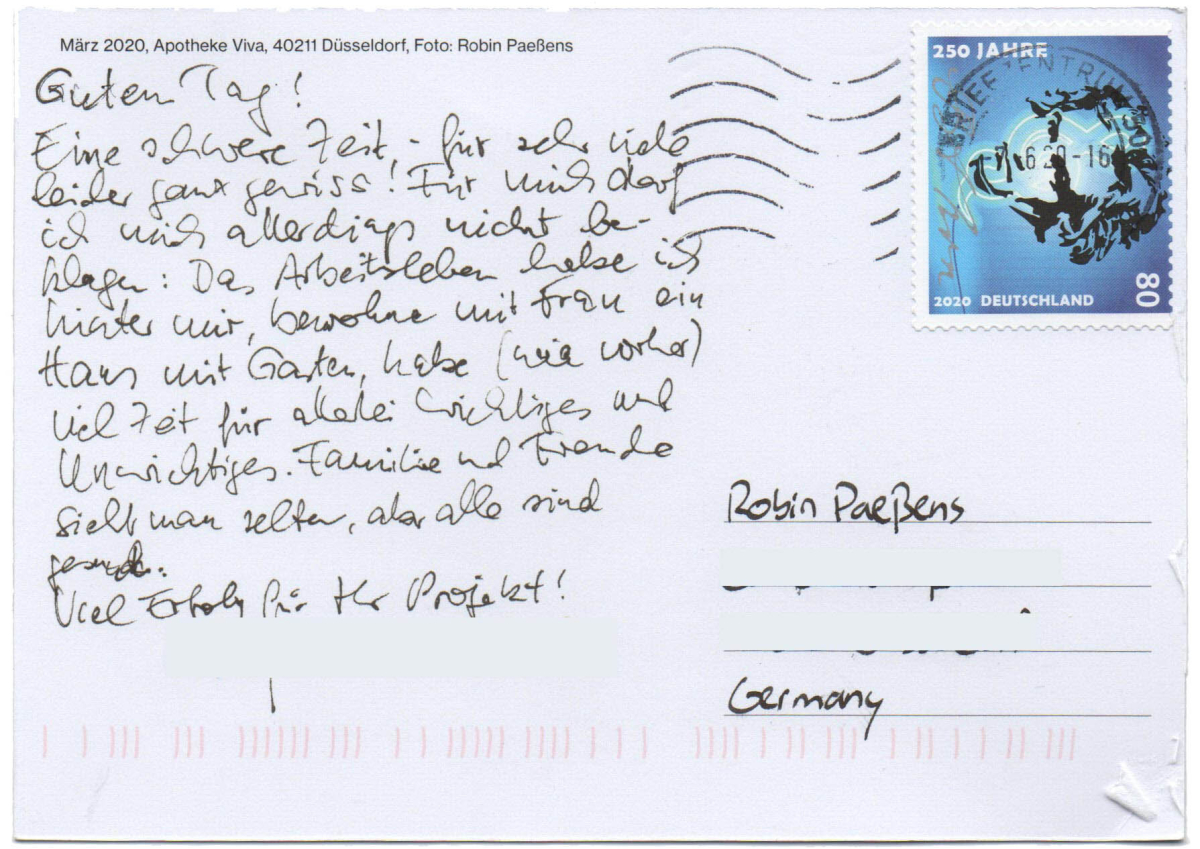 März 2020, Apotheke Viva, 40211 Düsseldorf, Foto: Robin Paeßens
Guten Tag!
Eine schwere Zeit, - für sehr viele
leider ganz gewiss! Für mich darf
ich mich allerdings nicht be-
klagen: Das Arbeitsleben habe ich
hinter mir, bewohne mit Frau ein
Haus mit Garten, habe (wie vorher)
viel Zeit für allerlei Wichtiges und
Unwichtiges. Familie und Freunde
sieht man selten, aber alle sind
gesund.
Viel Erfolg für Ihr Projekt!
250 JAHRE
BRIEFZENTRUM
6.20-16
2020 DEUTSCHLAND
80
Robin Paeßens
Germany